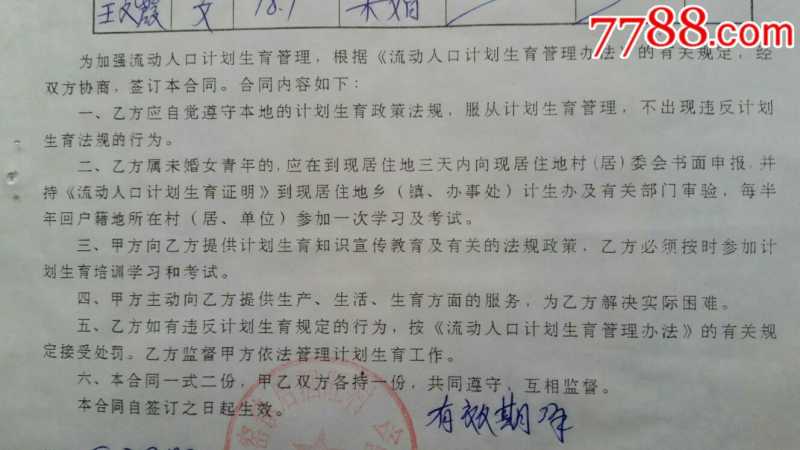 王文霞 女 78.1 未婚
7788.com
为加强流动人口计划生育管理，根据《流动人口计划生育管理办法》的有关规定，经
双方协商，签订本合同。合同内容如下：
一、乙方应自觉遵守本地的计划生育政策法规，服从计划生育管理，不出现违反计划
生育法规的行为。
二、乙方属未婚女青年的，应在到现居住地三天内向现居住地村(居)委会书面申报，并
持《流动人口计划生育证明》到现居住地乡（镇、办事处）计生办及有关部门审验，每半
年回户籍地所在村（居、单位）参加一次学习及考试。
三、甲方向乙方提供计划生育知识宣传教育及有关的法规政策，乙方必须按时参加计
划生育培训学习和考试。
四、甲方主动向乙方提供生产、生活、生育方面的服务，为乙方解决实际困难。
五、乙方如有违反计划生育规定的行为，按《流动人口计划生育管理办法》的有关规
定接受处罚。乙方监督甲方依法管理计划生育工作。
六、本合同一式二份，甲乙双方各持一份，共同遵守，互相监督。
本合同自签订之日起生效。
有效期